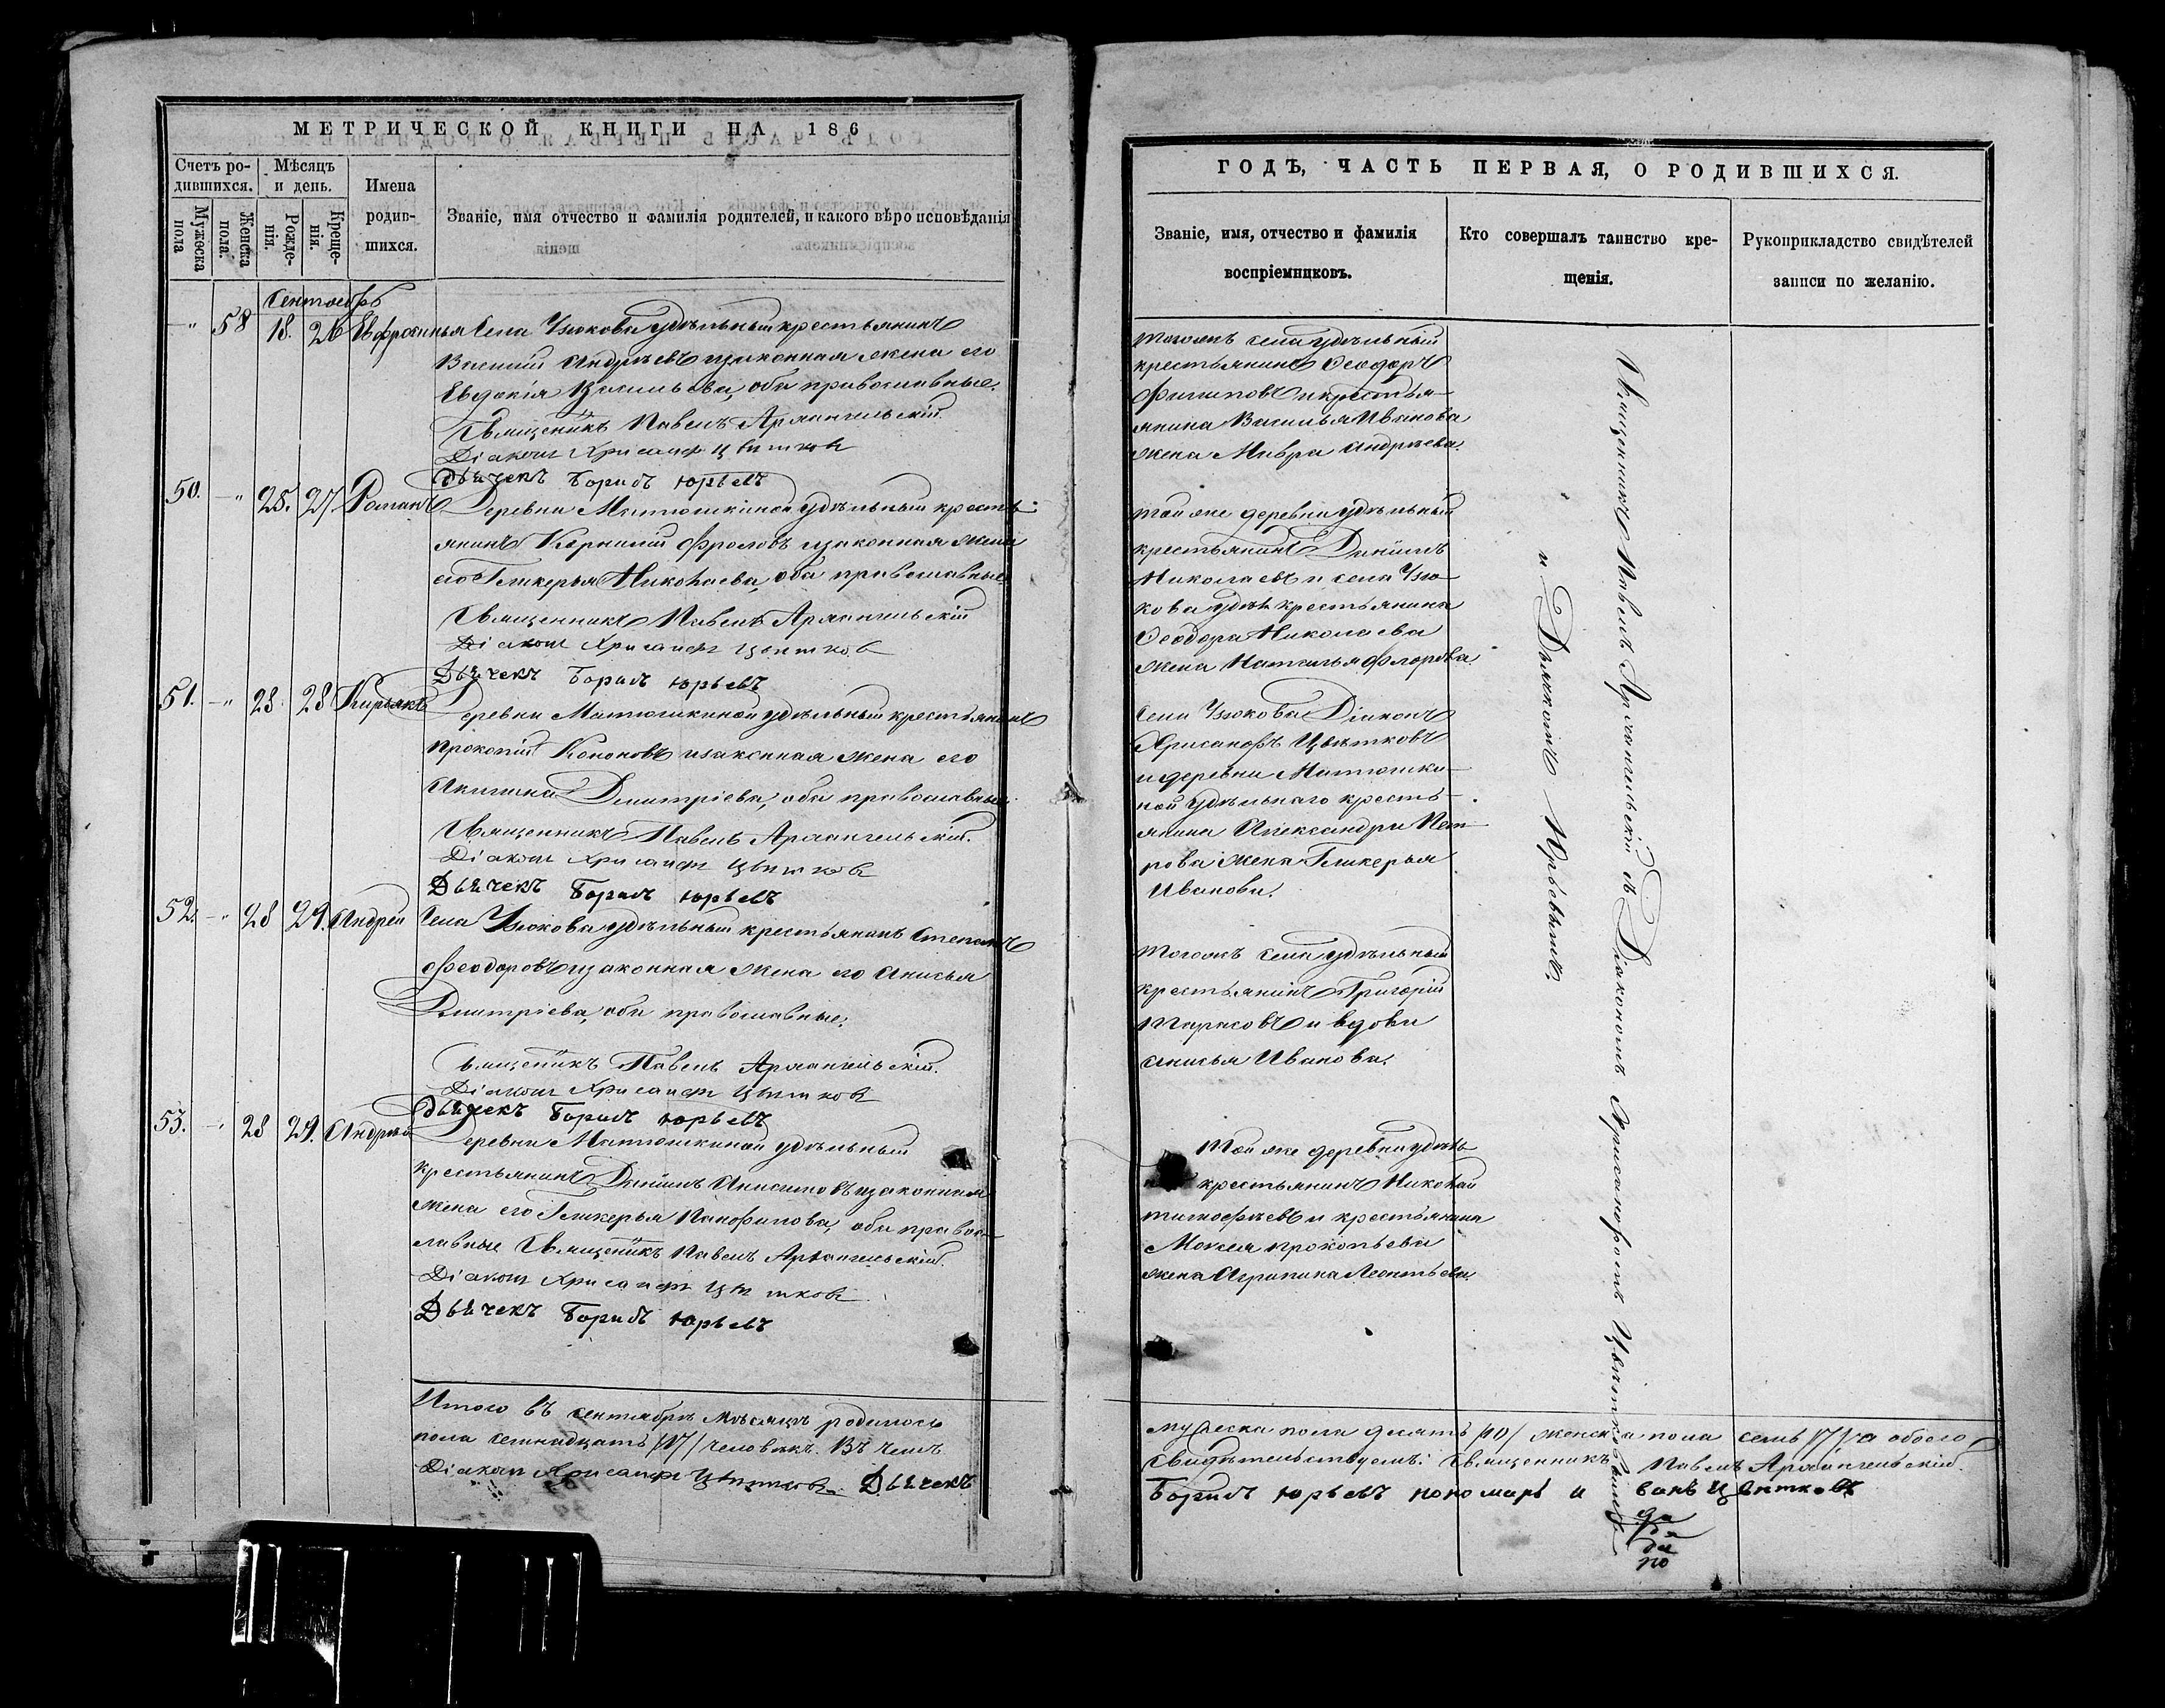 МЕТРИЧЕСКОЙ КНИГИ НА 186
Счетъ ро-
дившихся.
Мѣсяцъ
и день.
Имена
родив-
шихся.
Званіе, имя отчество и фамилія родителей, и какого вѣроисповѣданія
Мужеска
пола
Женска
пола.
Рожде-
нія.
Креще-
нія.
Сентябрь
—„ 58 18. 26 Евфросинья Села Узюкова удѣльный крестьянинъ
Василій Андреевъ и законная жена его
Евдокія Васильева, оба православные.
Священникъ Павелъ Архангельскій
Діаконъ Хрисанфъ Цвѣтковъ
Дьячекъ Борисъ Юрьевъ
50. —„ 25. 27 Романъ Деревни Матюшкиной удѣльный кресть-
янинъ Корнилій Фроловъ и законная жена
его Гликерья Николаева, оба православные.
Священникъ Павелъ Архангельскій
Діаконъ Хрисанфъ Цвѣтковъ
Дьячекъ Борисъ Юрьевъ
51. —„ 28 28 Кирьякъ Деревни Матюшкиной удѣльный крестьянинъ
Прокопій Кононовъ и законная жена его
Акилина Дмитріева, оба православные.
Священникъ Павелъ Архангельскій.
Діаконъ Хрисанфъ Цвѣтковъ
Дьячекъ Борисъ Юрьевъ
52. —„ 28 29. Андрей Села Узюкова удѣльный крестьянинъ Степанъ
Феодоровъ и законная жена его Анисья
Дмитріева, оба православные.
Священикъ Павелъ Архангельскій.
Діаконъ Хрисанфъ Цвѣтковъ
Дьячекъ Борисъ Юрьевъ
53. —„ 28 29. Андрей Деревни Матюшкиной удѣльный
крестьянинъ Даніилъ Анисимовъ и законная
жена его Гликерья Панфилова, оба право-
славные Священикъ Павелъ Архангельскій.
Діаконъ Хрисанфъ Цвѣтковъ
Дьячекъ Борисъ Юрьевъ
Итого въ сентябрѣ мѣсяцѣ родилось
пола семнадцать /17/ человѣкъ. Въ чемъ
Діаконъ Хрисанфъ Цвѣтковъ. Дьячекъ
ГОДЪ, ЧАСТЬ ПЕРВАЯ, О РОДИВШИХСЯ.
Званіе, имя, отчество и фамилія
воспріемниковъ.
Кто совершалъ таинство кре-
щенія.
Рукоприкладство свидѣтелей
записи по желанію.
Тогожъ села удѣльный
крестьянинъ Феодоръ
Филиповъ и крестья-
янина Василья Иванова
жена Мавра Андреева.
Той же деревни удѣльный
крестьянинъ Даніилъ
Николаевъ и села Узю-
кова удѣл крестьянина
Феодора Николаева
жена Наталья Флорова.
Села Узюкова Діаконъ
Хрисанфъ Цвѣтковъ
и деревни Матюшки-
ной удѣльнаго кресть-
янина Александра Пет-
рова жена Гликерья
Иванова.
Тогожъ села удѣльный
крестьянинъ Григорій
Тарасовъ и вдова
Анисья Иванова.
Той же деревни удѣль
крестьянинъ Николай
Тимофѣевъ и крестьянина
Мокея Прокопьева
жена Агрипина Леонтьева.
Священникъ Павелъ Архангельскій съ Діакономъ Хрисанфомъ Цвѣтковымъ
и Дьячкомъ Юрьевымъ.
мужеска пола десять /10/ женска пола семь /7/ а обоего
Свидѣтельствуемъ: Священникъ Павелъ Архангельскій.
Борисъ Юрьевъ пономарь Иванъ Цвѣтковъ